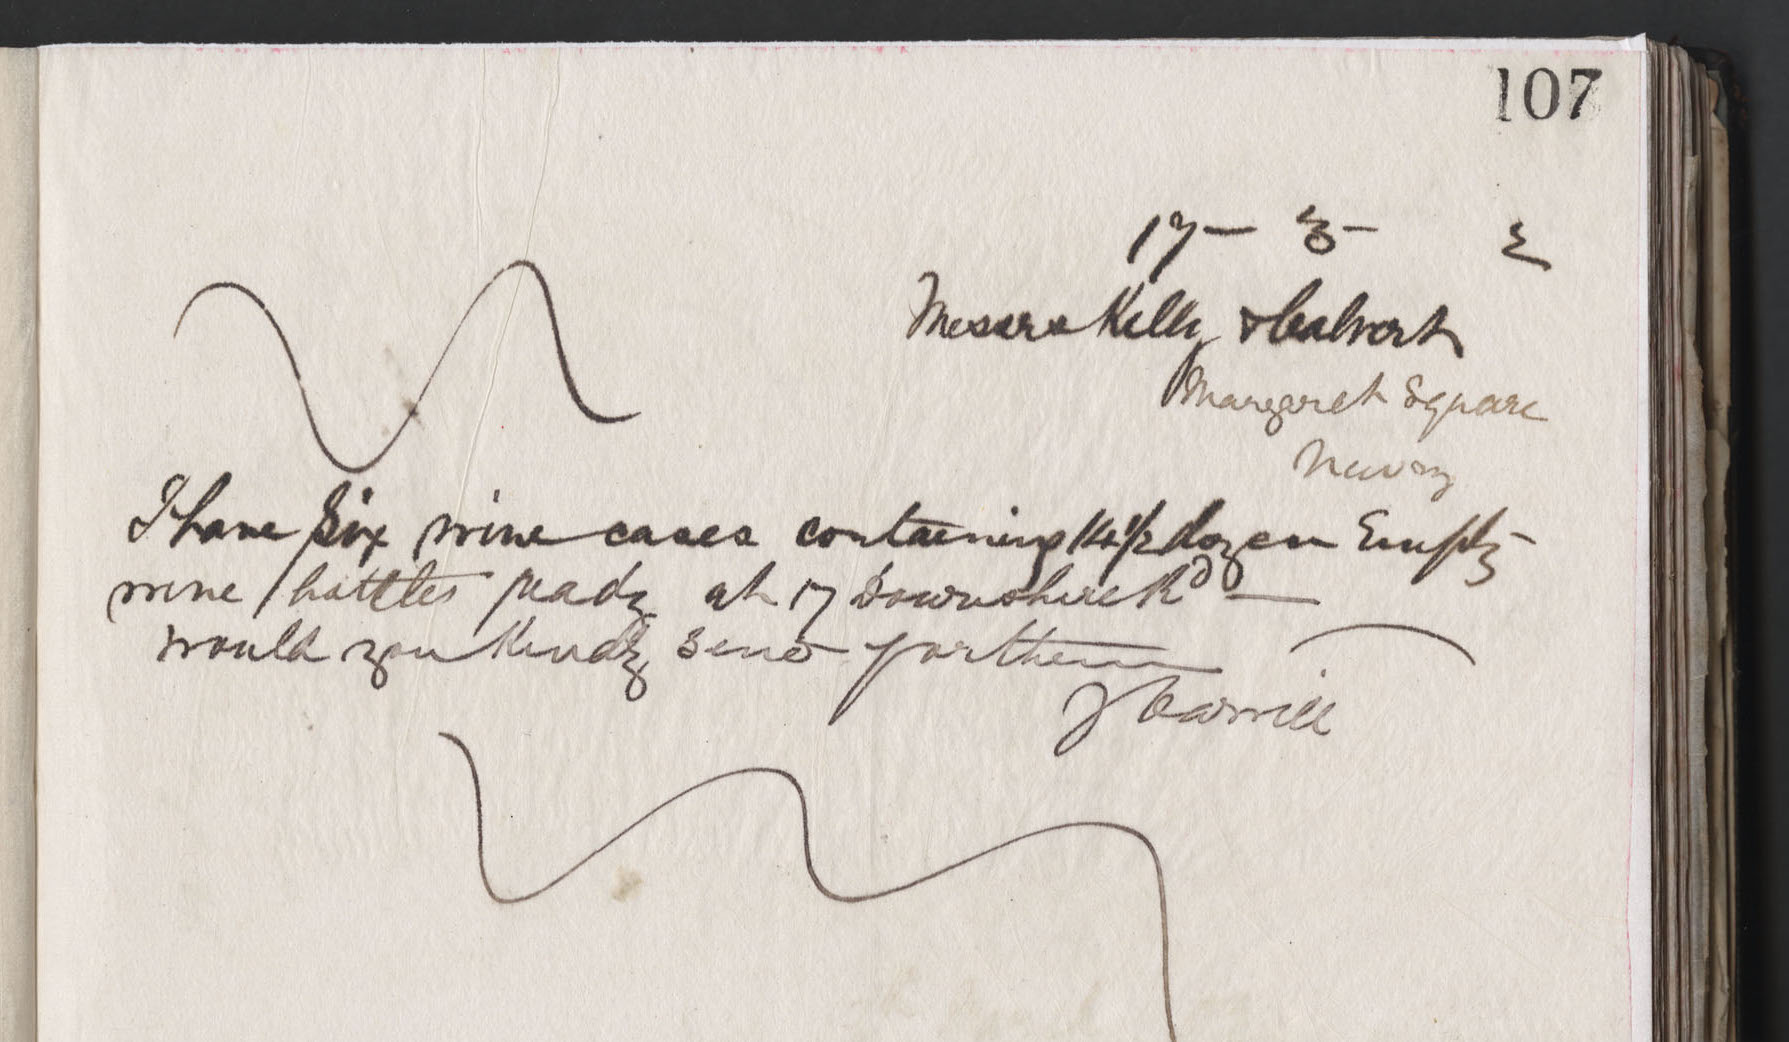 107
17 – 3 – 2
Messrs Kelly & Calvert
Margaret Square
Newry
I have six wine cases containing 14½ dozen Empty
wine bottles ready at 17 Downshire Rd –
would you kindly send for them
J Carvill